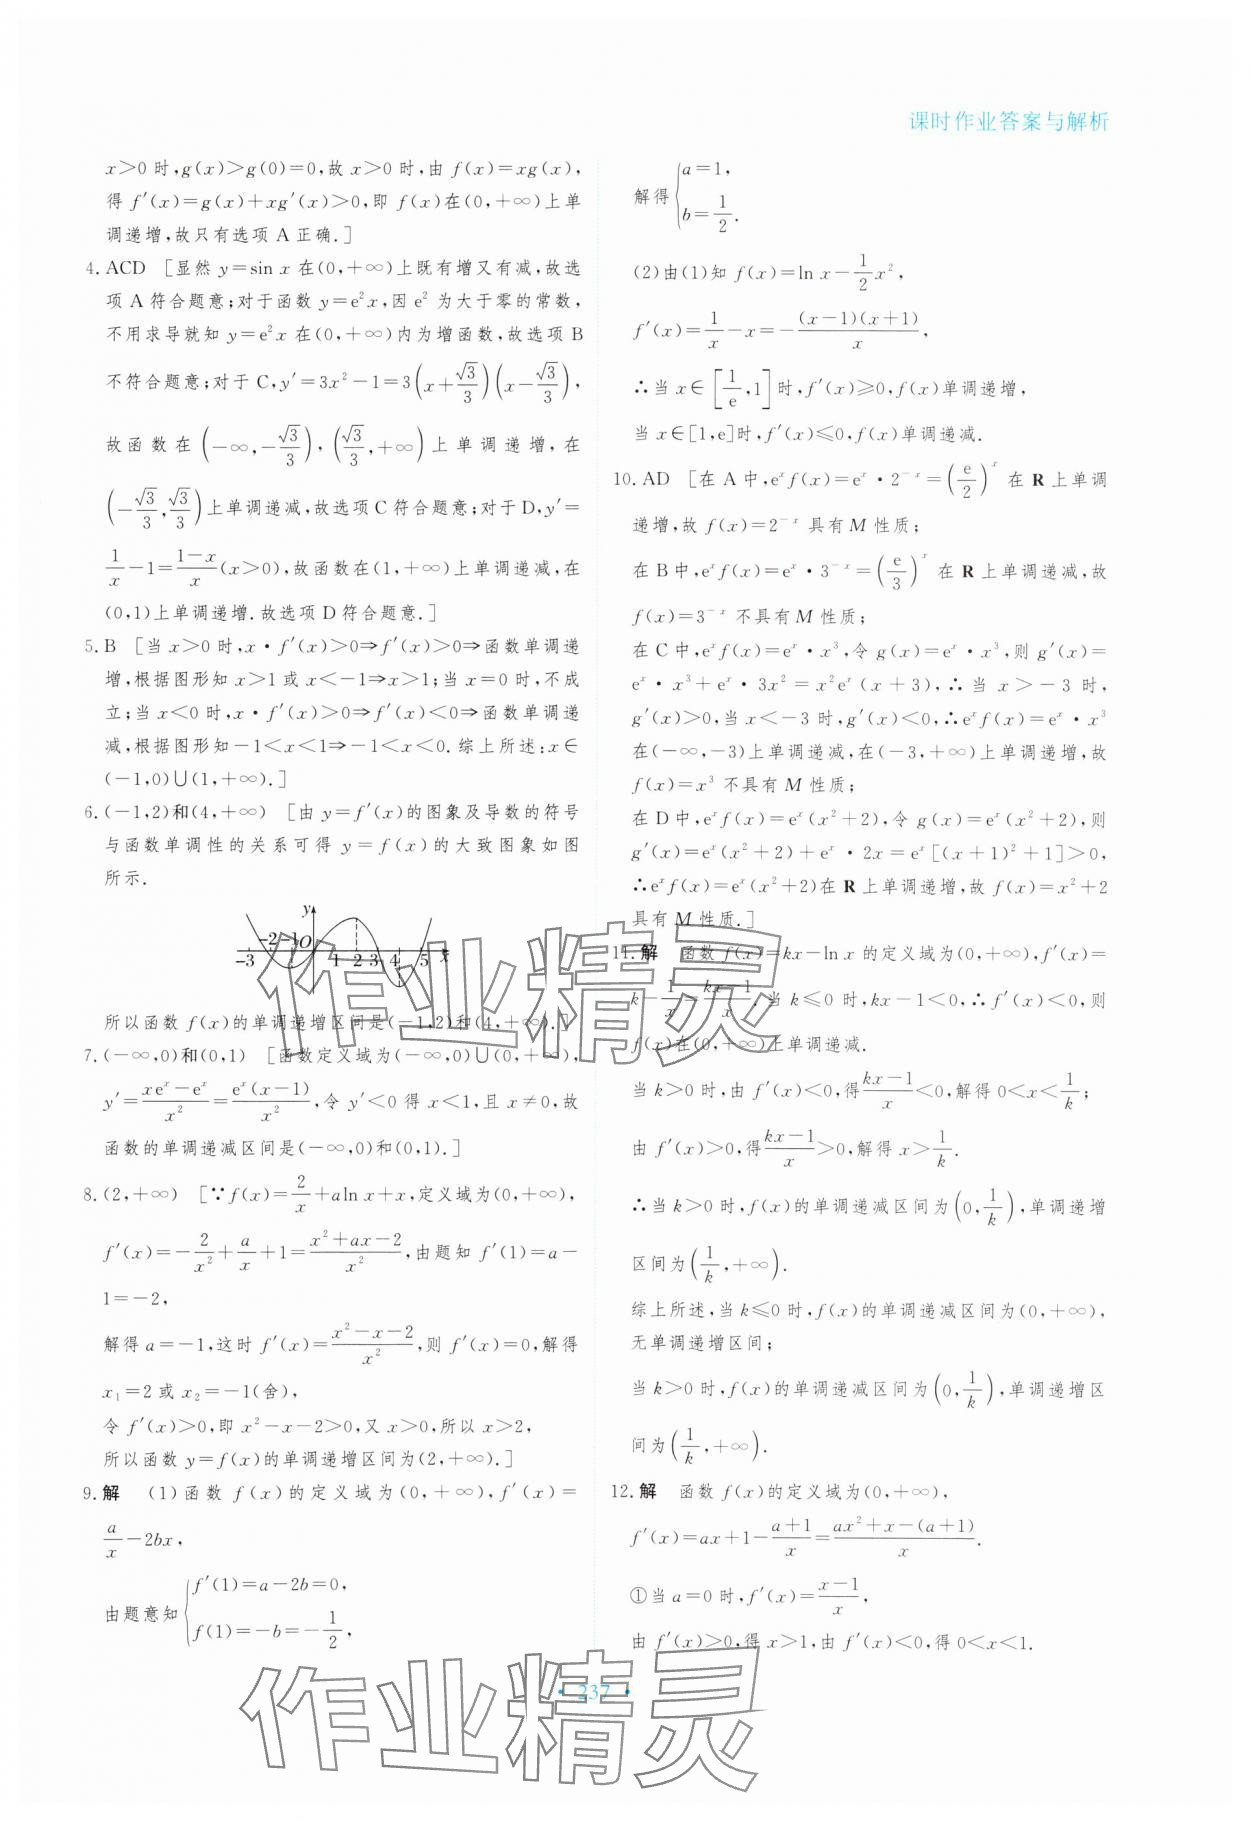 课时作业答案与解析
x>0时,g(x)>g(0)=0,故x>0时,由f(x)=xg(x),
得f′(x)=g(x)+xg′(x)>0,即f(x)在(0,+∞)上单
调递增,故只有选项A正确.]
4.ACD [显然y=sin x在(0,+∞)上既有增又有减,故选
项A符合题意;对于函数y=e²x,因e²为大于零的常数,
不用求导就知y=e²x在(0,+∞)内为增函数,故选项B
不符合题意;对于C,y′=3x²-1=3(x+√3/3)(x-√3/3),
故函数在(-∞,-√3/3),(√3/3,+∞)上单调递增,在
(-√3/3,√3/3)上单调递减,故选项C符合题意;对于D,y′=
1/x-1=(1-x)/x(x>0),故函数在(1,+∞)上单调递减,在
(0,1)上单调递增.故选项D符合题意.]
5.B [当x>0时,x·f′(x)>0⇒f′(x)>0⇒函数单调递
增,根据图形知x>1或x<-1⇒x>1;当x=0时,不成
立;当x<0时,x·f′(x)>0⇒f′(x)<0⇒函数单调递
减,根据图形知-1<x<1⇒-1<x<0.综上所述:x∈
(-1,0)∪(1,+∞).]
6.(-1,2)和(4,+∞) [由y=f′(x)的图象及导数的符号
与函数单调性的关系可得y=f(x)的大致图象如图
所示.
y
-3 -2 -1 O 1 2 3 4 5 x
所以函数f(x)的单调递增区间是(-1,2)和(4,+∞).]
7.(-∞,0)和(0,1) [函数定义域为(-∞,0)∪(0,+∞),
y′=(xeˣ-eˣ)/x²=eˣ(x-1)/x²,令y′<0得x<1,且x≠0,故
函数的单调递减区间是(-∞,0)和(0,1).]
8.(2,+∞) [∵f(x)=2/x+aln x+x,定义域为(0,+∞),
f′(x)=-2/x²+a/x+1=(x²+ax-2)/x²,由题知f′(1)=a-
1=-2,
解得a=-1,这时f′(x)=(x²-x-2)/x²,则f′(x)=0,解得
x₁=2或x₂=-1(舍),
令f′(x)>0,即x²-x-2>0,又x>0,所以x>2,
所以函数y=f(x)的单调递增区间为(2,+∞).]
9.解 (1)函数f(x)的定义域为(0,+∞),f′(x)=
a/x-2bx,
由题意知{f′(1)=a-2b=0,
f(1)=-b=-1/2,
解得{a=1,
b=1/2.
(2)由(1)知f(x)=ln x-1/2x²,
f′(x)=1/x-x=-(x-1)(x+1)/x,
∴当x∈[1/e,1]时,f′(x)≥0,f(x)单调递增,
当x∈[1,e]时,f′(x)≤0,f(x)单调递减.
10.AD [在A中,eˣf(x)=eˣ·2⁻ˣ=(e/2)ˣ在R上单调
递增,故f(x)=2⁻ˣ具有M性质;
在B中,eˣf(x)=eˣ·3⁻ˣ=(e/3)ˣ在R上单调递减,故
f(x)=3⁻ˣ不具有M性质;
在C中,eˣf(x)=eˣ·x³,令g(x)=eˣ·x³,则g′(x)=
eˣ·x³+eˣ·3x²=x²eˣ(x+3),∴当x>-3时,
g′(x)>0,当x<-3时,g′(x)<0,∴eˣf(x)=eˣ·x³
在(-∞,-3)上单调递减,在(-3,+∞)上单调递增,故
f(x)=x³不具有M性质;
在D中,eˣf(x)=eˣ(x²+2),令g(x)=eˣ(x²+2),则
g′(x)=eˣ(x²+2)+eˣ·2x=eˣ[(x+1)²+1]>0,
∴eˣf(x)=eˣ(x²+2)在R上单调递增,故f(x)=x²+2
具有M性质.]
11.解 函数f(x)=kx-ln x的定义域为(0,+∞),f′(x)=
k-1/x=(kx-1)/x.当k≤0时,kx-1<0,∴f′(x)<0,则
f(x)在(0,+∞)上单调递减.
当k>0时,由f′(x)<0,得(kx-1)/x<0,解得0<x<1/k;
由f′(x)>0,得(kx-1)/x>0,解得x>1/k.
∴当k>0时,f(x)的单调递减区间为(0,1/k),单调递增
区间为(1/k,+∞).
综上所述,当k≤0时,f(x)的单调递减区间为(0,+∞),
无单调递增区间;
当k>0时,f(x)的单调递减区间为(0,1/k),单调递增区
间为(1/k,+∞).
12.解 函数f(x)的定义域为(0,+∞),
f′(x)=ax+1-(a+1)/x=(ax²+x-(a+1))/x.
①当a=0时,f′(x)=(x-1)/x,
由f′(x)>0,得x>1,由f′(x)<0,得0<x<1.
·237·
作业精灵
作业精灵